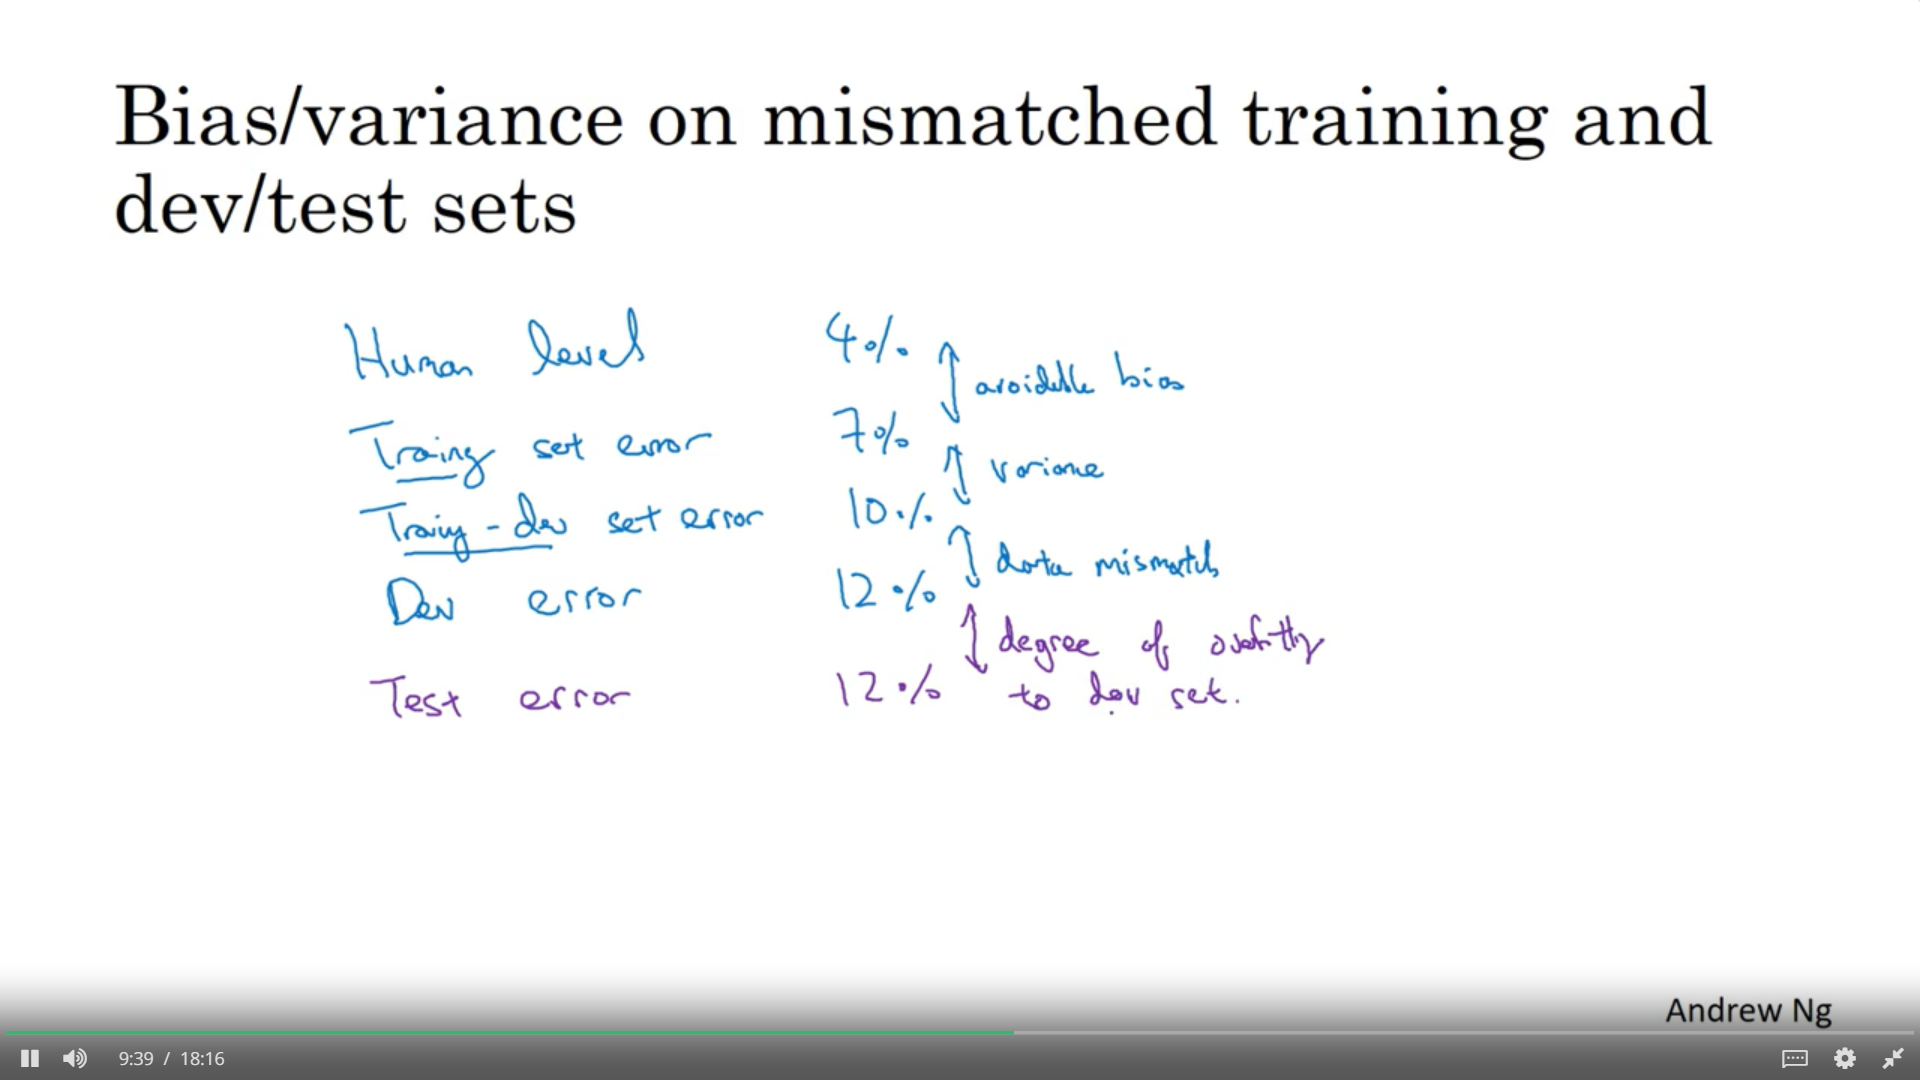 Bias/variance on mismatched training and
dev/test sets
Human level 4%
avoidable bias
Traing set error 7%
variance
Traing-dev set error 10%
data mismatch
Dev error 12%
degree of overfitting
Test error 12% to dev set.
Andrew Ng
9:39 / 18:16